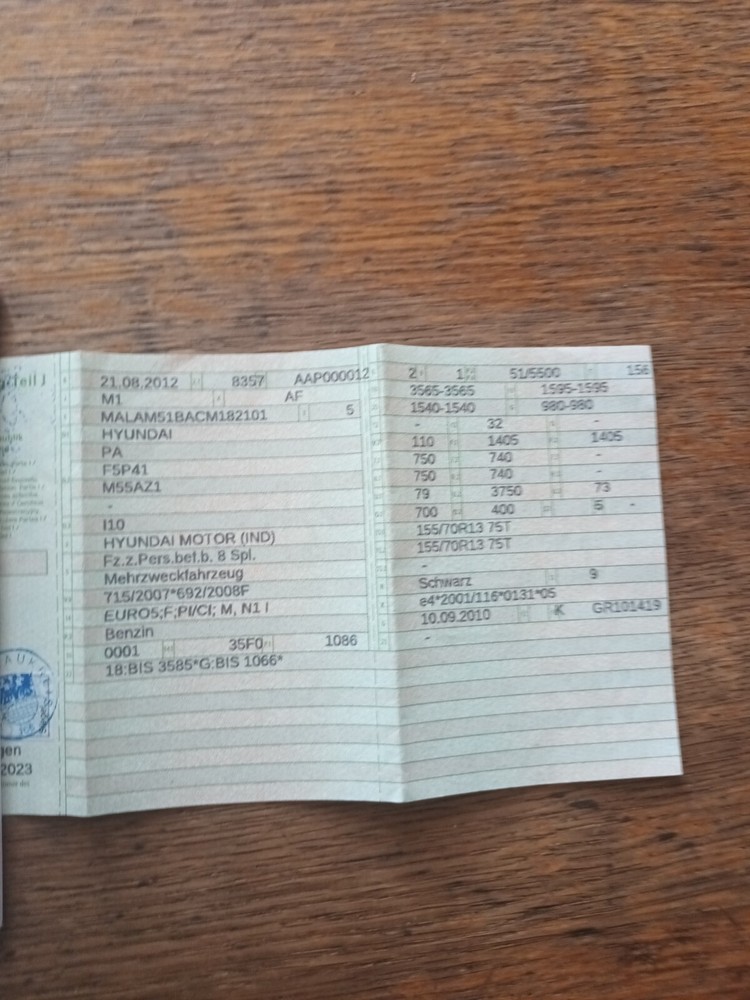 Teil I
21.08.2012 8357 AAP000012
M1 AF
MALAM51BACM182101 5
HYUNDAI
PA
F5P41
M55AZ1
-
I10
HYUNDAI MOTOR (IND)
Fz.z.Pers.bef.b. 8 Spl.
Mehrzweckfahrzeug
715/2007*692/2008F
EURO5;F;PI/CI; M, N1 I
Benzin
0001 35F0 1086
18:BIS 3585*G:BIS 1066*
2 1 51/5500 156
3565-3565 1595-1595
1540-1540 980-980
- 32 -
110 1405 1405
750 740 -
750 740 -
79 3750 73
700 400 5 -
155/70R13 75T
155/70R13 75T
-
Schwarz 9
e4*2001/116*0131*05
10.09.2010 K GR101419
-
gen
2023